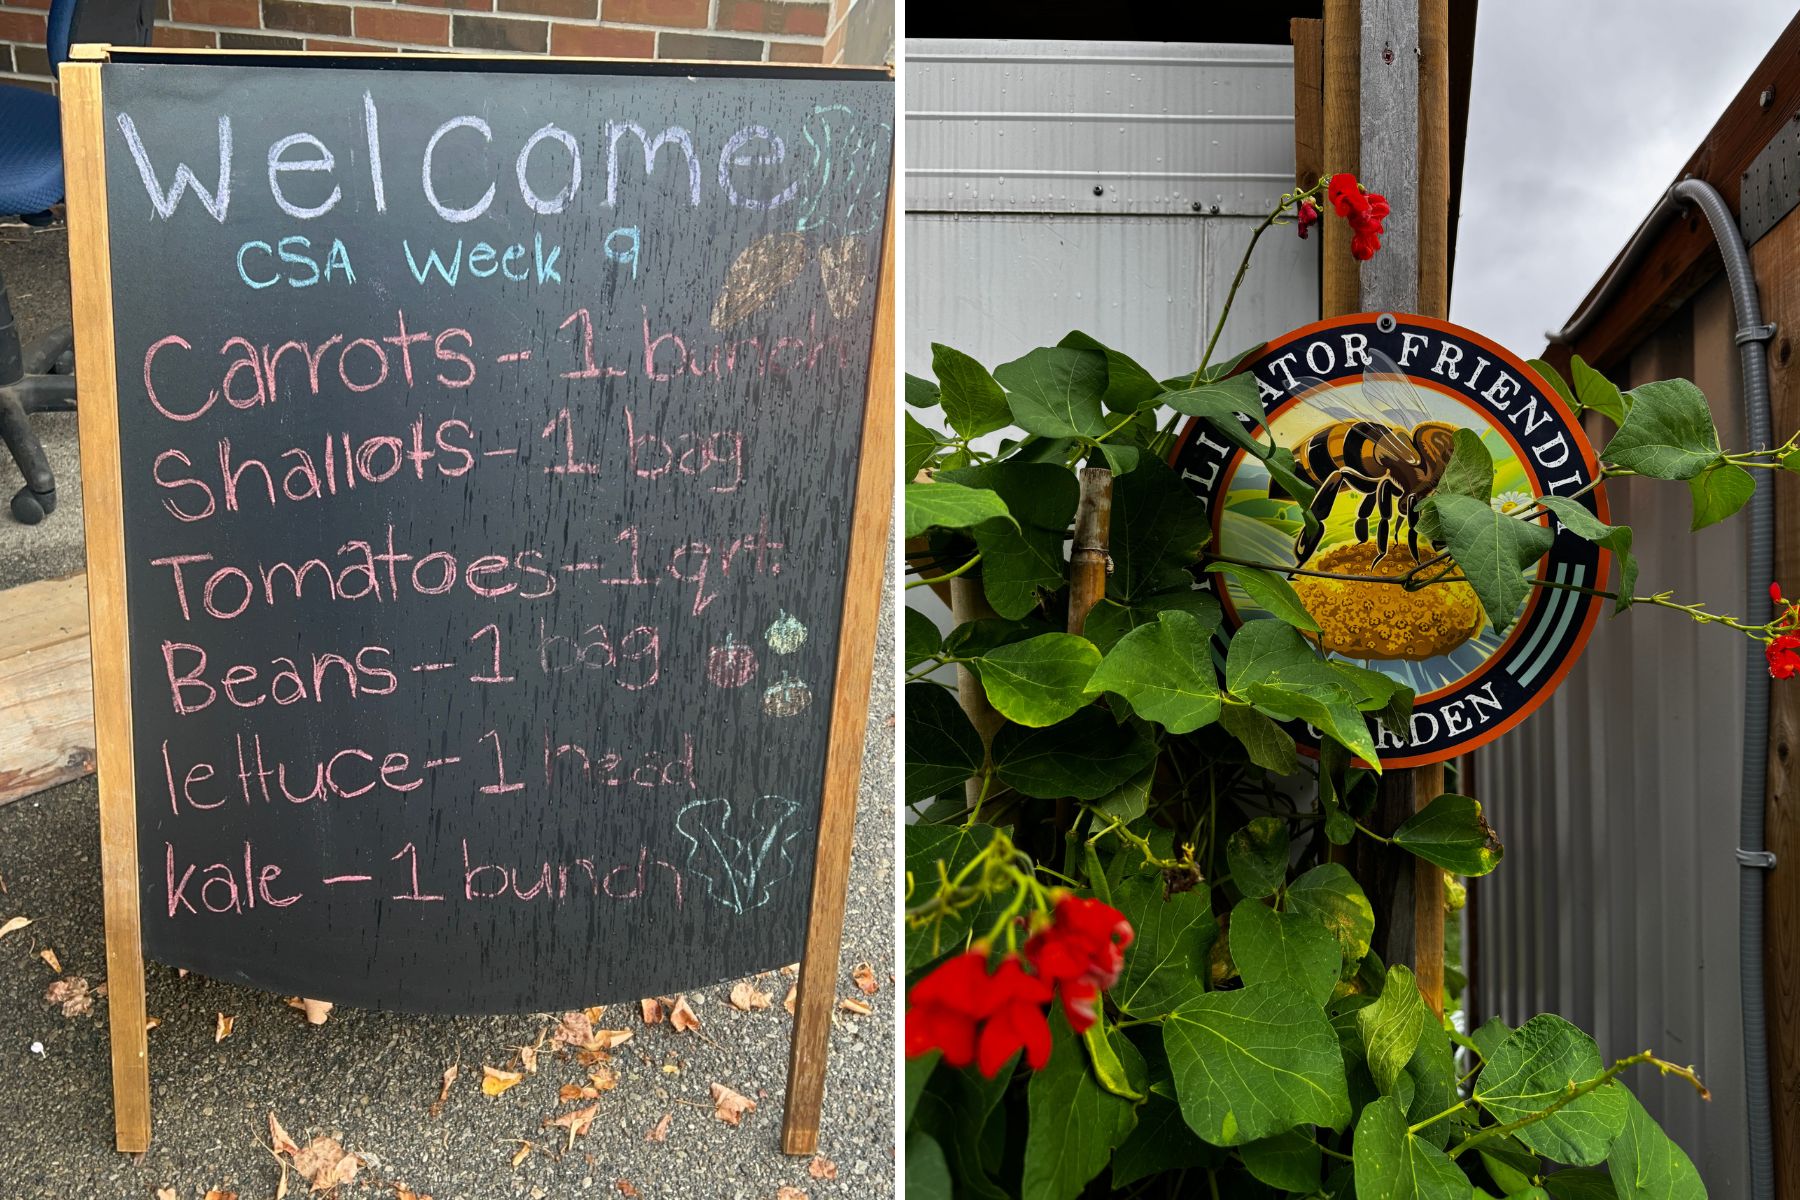 Welcome
CSA Week 9
Carrots - 1 bunch
Shallots - 1 bag
Tomatoes - 1 qrt.
Beans - 1 bag
lettuce - 1 head
kale - 1 bunch
FRIENDLY
GARDEN